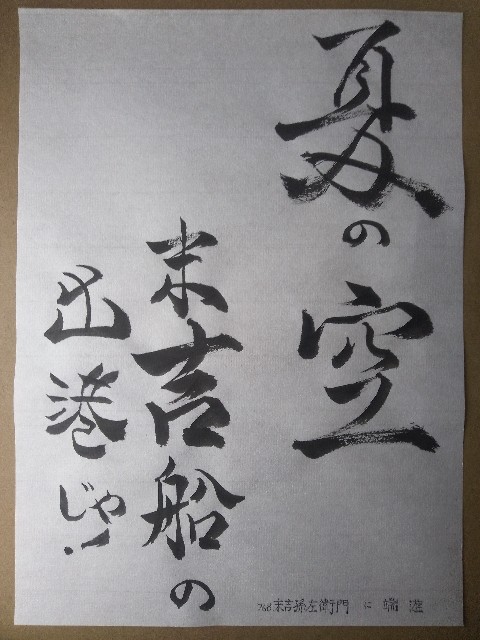 夏の空
末吉船の
出港じゃ!
766 末吉孫左衛門 に 端遊